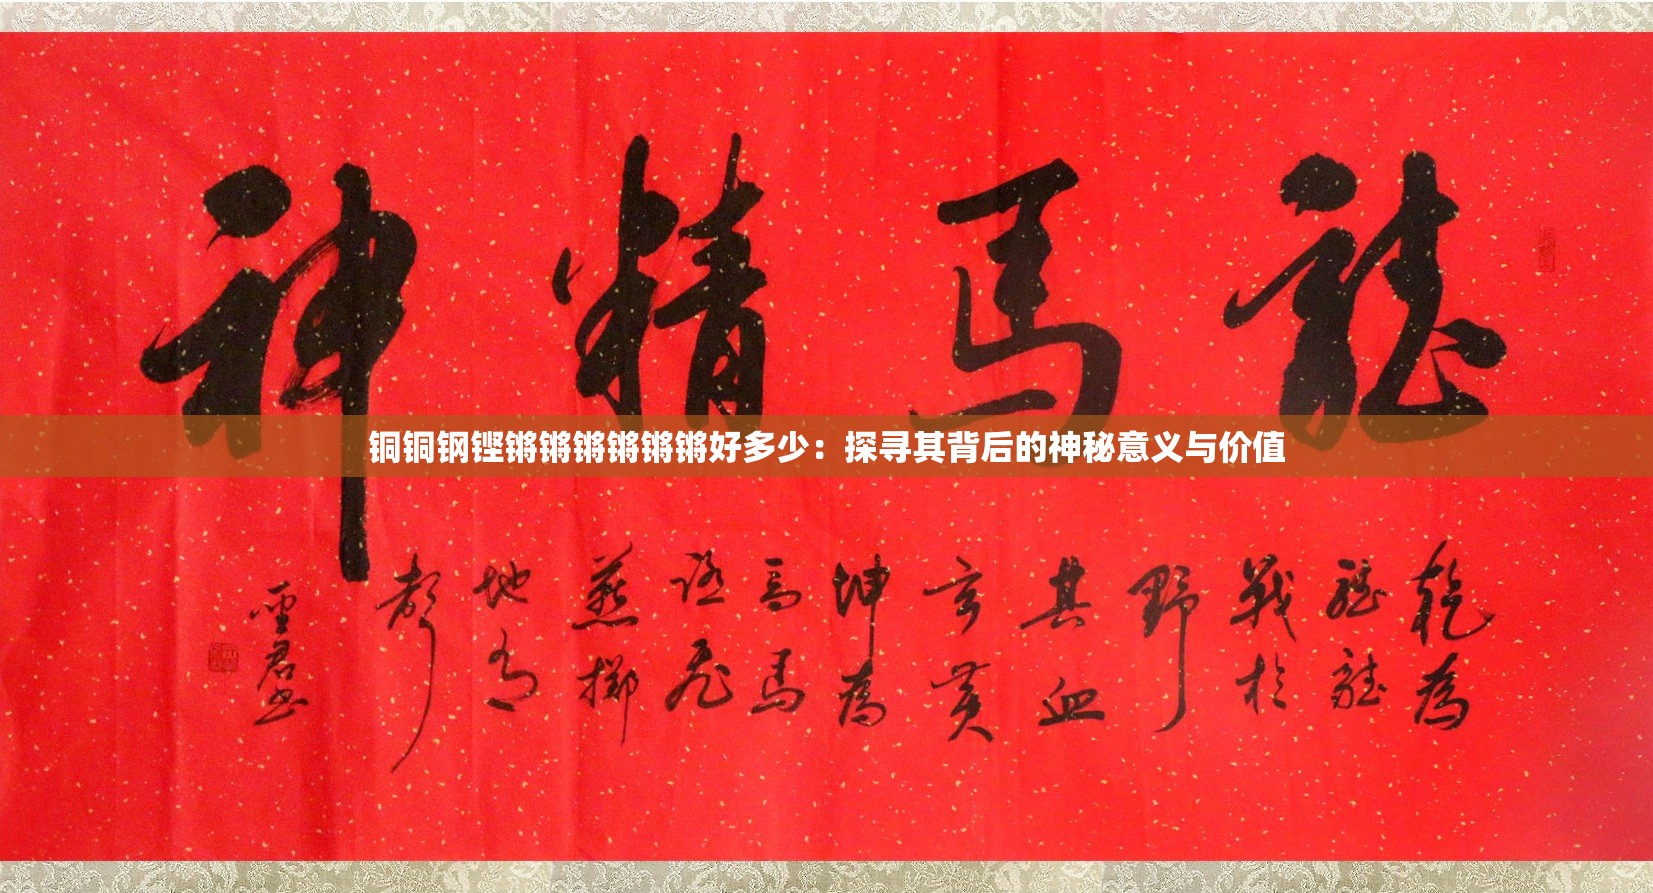 龍马精神
铜铜钢铿锵锵锵锵锵锵好多少：探寻其背后的神秘意义与价值
乾為
龍龍
戰於
野
其血
玄黄
坤為
馬馬
踏飛
燕擲
地有
聲
君书